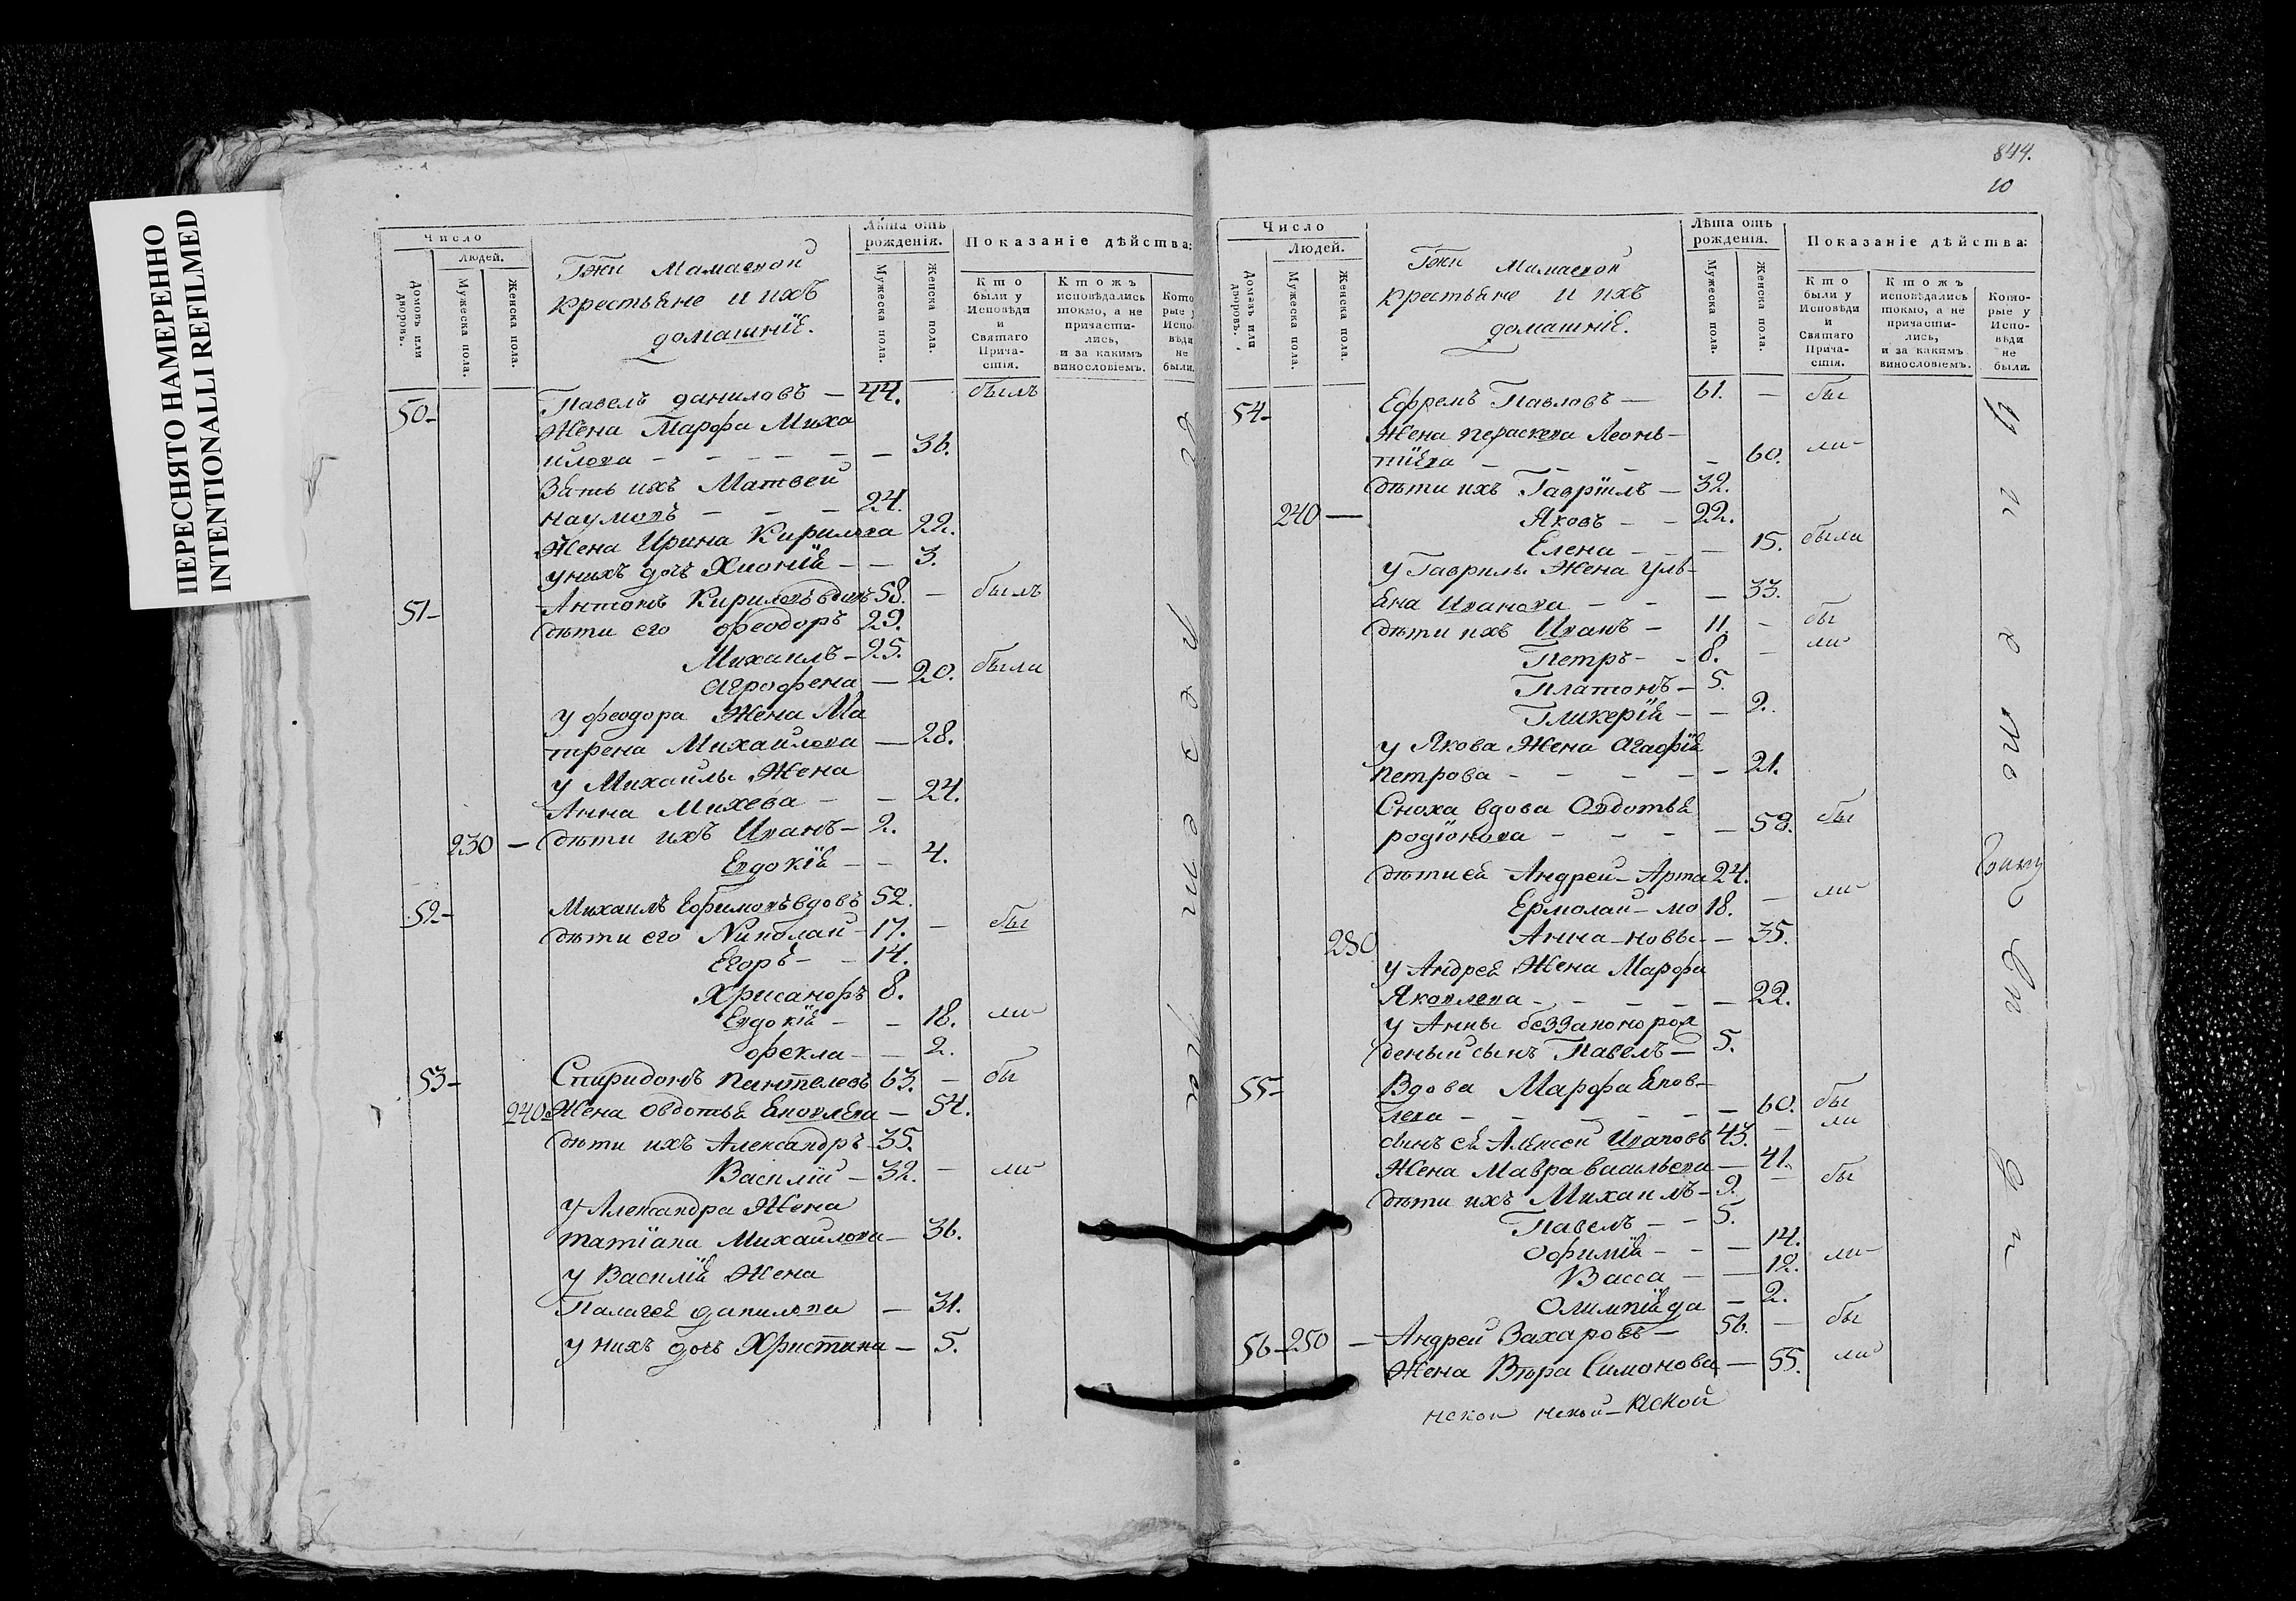 ПЕРЕСНЯТО НАМЕРЕННО
INTENTIONALLI REFILMED
Число
Людей.
Домовъ или дворовъ.
Мужеска пола.
Женска пола.
Гжи Мамаевой
крестьяне и ихъ
домашніе.
Лѣта отъ рожденія.
Мужеска пола.
Женска пола.
Показаніе дѣйства:
Кто были у Исповѣди и Святаго Причастія.
Ктожъ исповѣдались токмо, а не причастились, и за какимъ винословіемъ.
50- Павелъ даниловъ — 44. былъ
Жена Марфа Миха
илова — — — — — 36.
Зять ихъ Матвей
Наумовъ — — — 24.
Жена Ирина Кирилова 22.
у нихъ дочь Хионія — — 3.
51- Антонъ Кириловъ вдовъ 58. — былъ
дѣти его Феодоръ 29.
Михаилъ - 25.
Агрофена — 20. были
у Феодора Жена Ма
трена Михайлова — 28.
у Михаилы Жена
Анна Михева — — 24.
230 — дѣти ихъ Иванъ — 2.
Евдокія — — 4.
52- Михаилъ Ефимовъ вдовъ 52.
дѣти его Николай - 17. — бы
Егоръ — — 14.
Хрисанфъ 8.
Евдокія — — 18. ли
Фекла — — 2.
53- Спиридонъ Пантелеевъ 63. — бы
240 Жена Овдотья Яковлева — 54.
дѣти ихъ Александръ - 35.
Василій — 32. — ли
у Александра Жена
татіана Михайлова — 36.
у Василія Жена
Палагея данилова — 31.
у нихъ дочь Христина — 5.
844.
10
Число
Людей.
Домовъ или дворовъ.
Мужеска пола.
Женска пола.
Гжи Мамаевой
крестьяне и ихъ
домашніе.
Лѣта отъ рожденія.
Мужеска пола.
Женска пола.
Показаніе дѣйства:
Кто были у Исповѣди и Святаго Причастія.
Ктожъ исповѣдались токмо, а не причастились, и за какимъ винословіемъ.
Которые у Исповѣди не были.
54- Ефремъ Павловъ — 61. — бы
Жена Пераскева Леонь-
тіева — — — — 60. ли
дѣти ихъ Гавріилъ — 32.
240 — Яковъ — — 22.
Елена — — — 15. были
у Гаврилы Жена Уль-
яна Иванова — — — 33.
дѣти ихъ Иванъ — 11. — бы
Петръ — — 8. — ли
Платонъ — 5.
Гликерія — — 2.
у Якова Жена Агафія
Петрова — — — — — 21.
Сноха вдова Овдотья
родіонова — — — — 58. бы
дѣти ея Андрей - Арта 24.
Ермолай - мо 18. — ли
230 Анна - новы — — 35.
у Андрея Жена Марфа
Яковлева — — — — — 22.
у Анны беззаконорож
деный сынъ Павелъ — 5.
55- Вдова Марфа Яков-
лева — — — — — — 60. бы
сынъ ея Алексей Ивановъ 43. — ли
Жена Мавра васильева — 41.
дѣти ихъ Михаилъ - 9. — бы
Павелъ — — 5.
Офимія — — — 14.
Васса — — 12. ли
Олимпіяда — 2.
56- 250 — Андрей Захаровъ — 56. — бы
Жена Вѣра Симонова — 55. ли